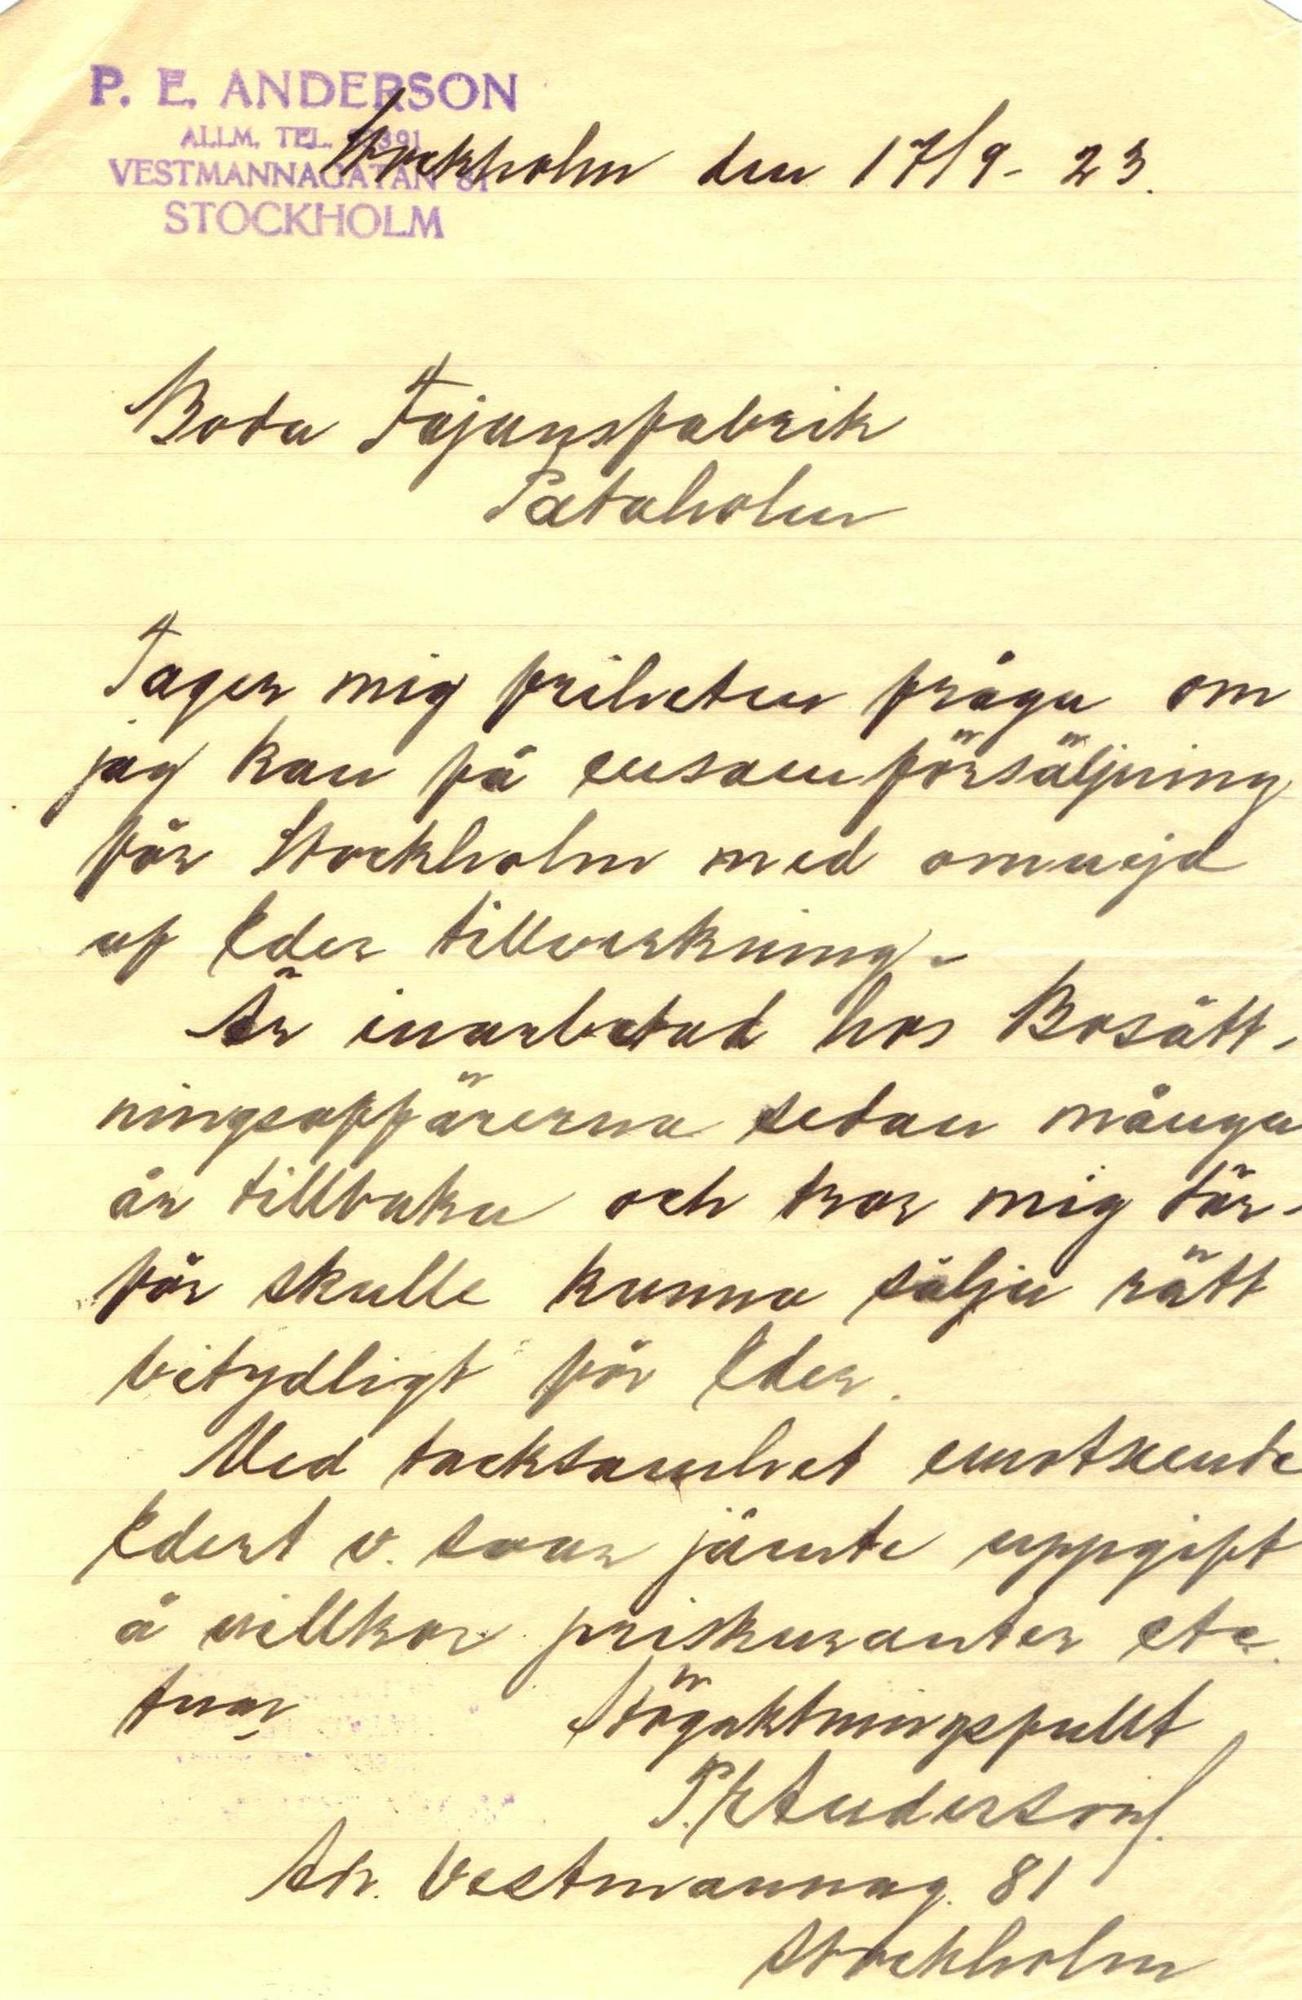 P. E. ANDERSON
ALLM. TEL. 391
VESTMANNAGATAN 81
STOCKHOLM
Stockholm den 17/9 - 23.
Boda Fajansfabrik
Pataholm
Tager mig friheten fråga om
jag kan få ensamförsäljning
för Stockholm med omnejd
af Eder tillverkning.
Är inarbetad hos Bosätt-
ningsaffärerna sedan många
år tillbaka och tror mig där-
för skulle kunna sälja rätt
betydligt för Eder.
Med tacksamhet emotseende
Edert v. svar jämte uppgift
å villkor priskuranter etc.
Högaktningsfullt
P. E. Anderson
Adr. Vestmannag. 81
Stockholm